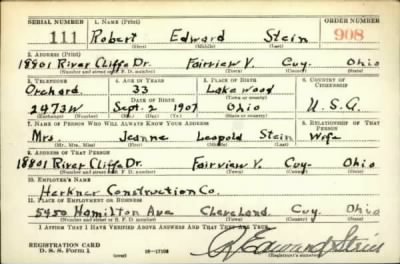 SERIAL NUMBER 1. NAME (Print) ORDER NUMBER
111 Robert Edward Stein 908
(First) (Middle) (Last)
2. ADDRESS (Print)
18801 River Cliff Dr. Fairview V. Cuy. Ohio
(Number and street or R. F. D. number) (Town) (County) (State)
3. TELEPHONE 4. AGE IN YEARS 5. PLACE OF BIRTH 6. COUNTRY OF CITIZENSHIP
Orchard 33 Lakewood
DATE OF BIRTH
2473W Sept. 2 1907 Ohio U.S.A.
(Exchange) (Number) (Mo.) (Day) (Yr.) (State or country)
7. NAME OF PERSON WHO WILL ALWAYS KNOW YOUR ADDRESS 8. RELATIONSHIP OF THAT PERSON
Mrs. Jeanne Leopold Stein Wife
(Mr., Mrs., Miss) (First) (Middle) (Last)
9. ADDRESS OF THAT PERSON
18801 River Cliff Dr. Fairview V. Cuy. Ohio
(Number and street or R. F. D. number) (Town) (County) (State)
10. EMPLOYER'S NAME
Herkner Construction Co.
11. PLACE OF EMPLOYMENT OR BUSINESS
5450 Hamilton Ave Cleveland. Cuy. Ohio
(Number and street or R. F. D. number) (Town) (County) (State)
I AFFIRM THAT I HAVE VERIFIED ABOVE ANSWERS AND THAT THEY ARE TRUE.
REGISTRATION CARD
D. S. S. Form 1 (over) R. Edward Stein